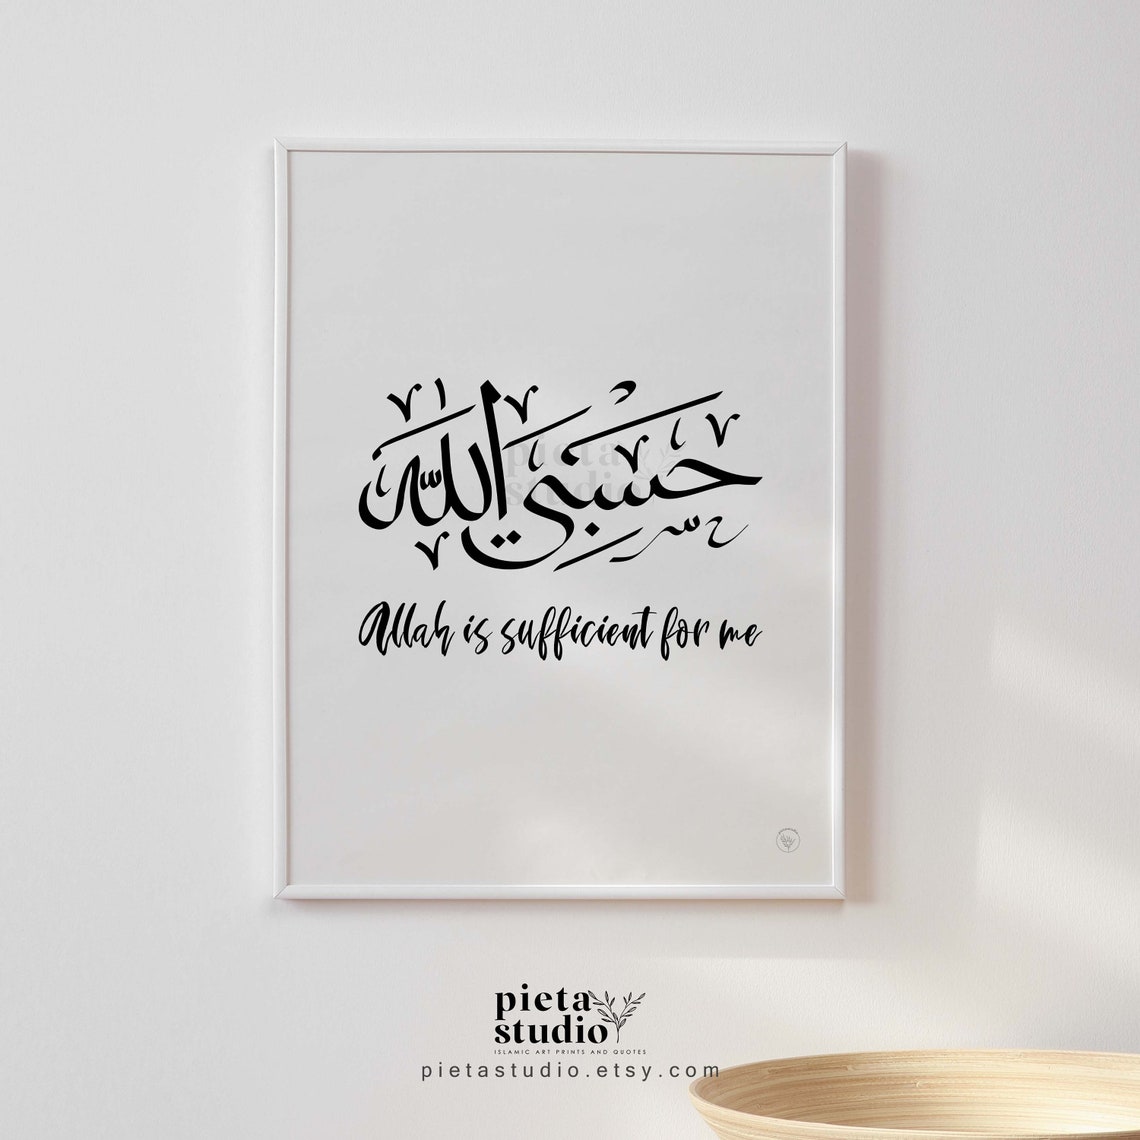 حسبي الله
Allah is sufficient for me
pieta
studio
pieta
studio
ISLAMIC ART PRINTS AND QUOTES
pietastudio.etsy.com